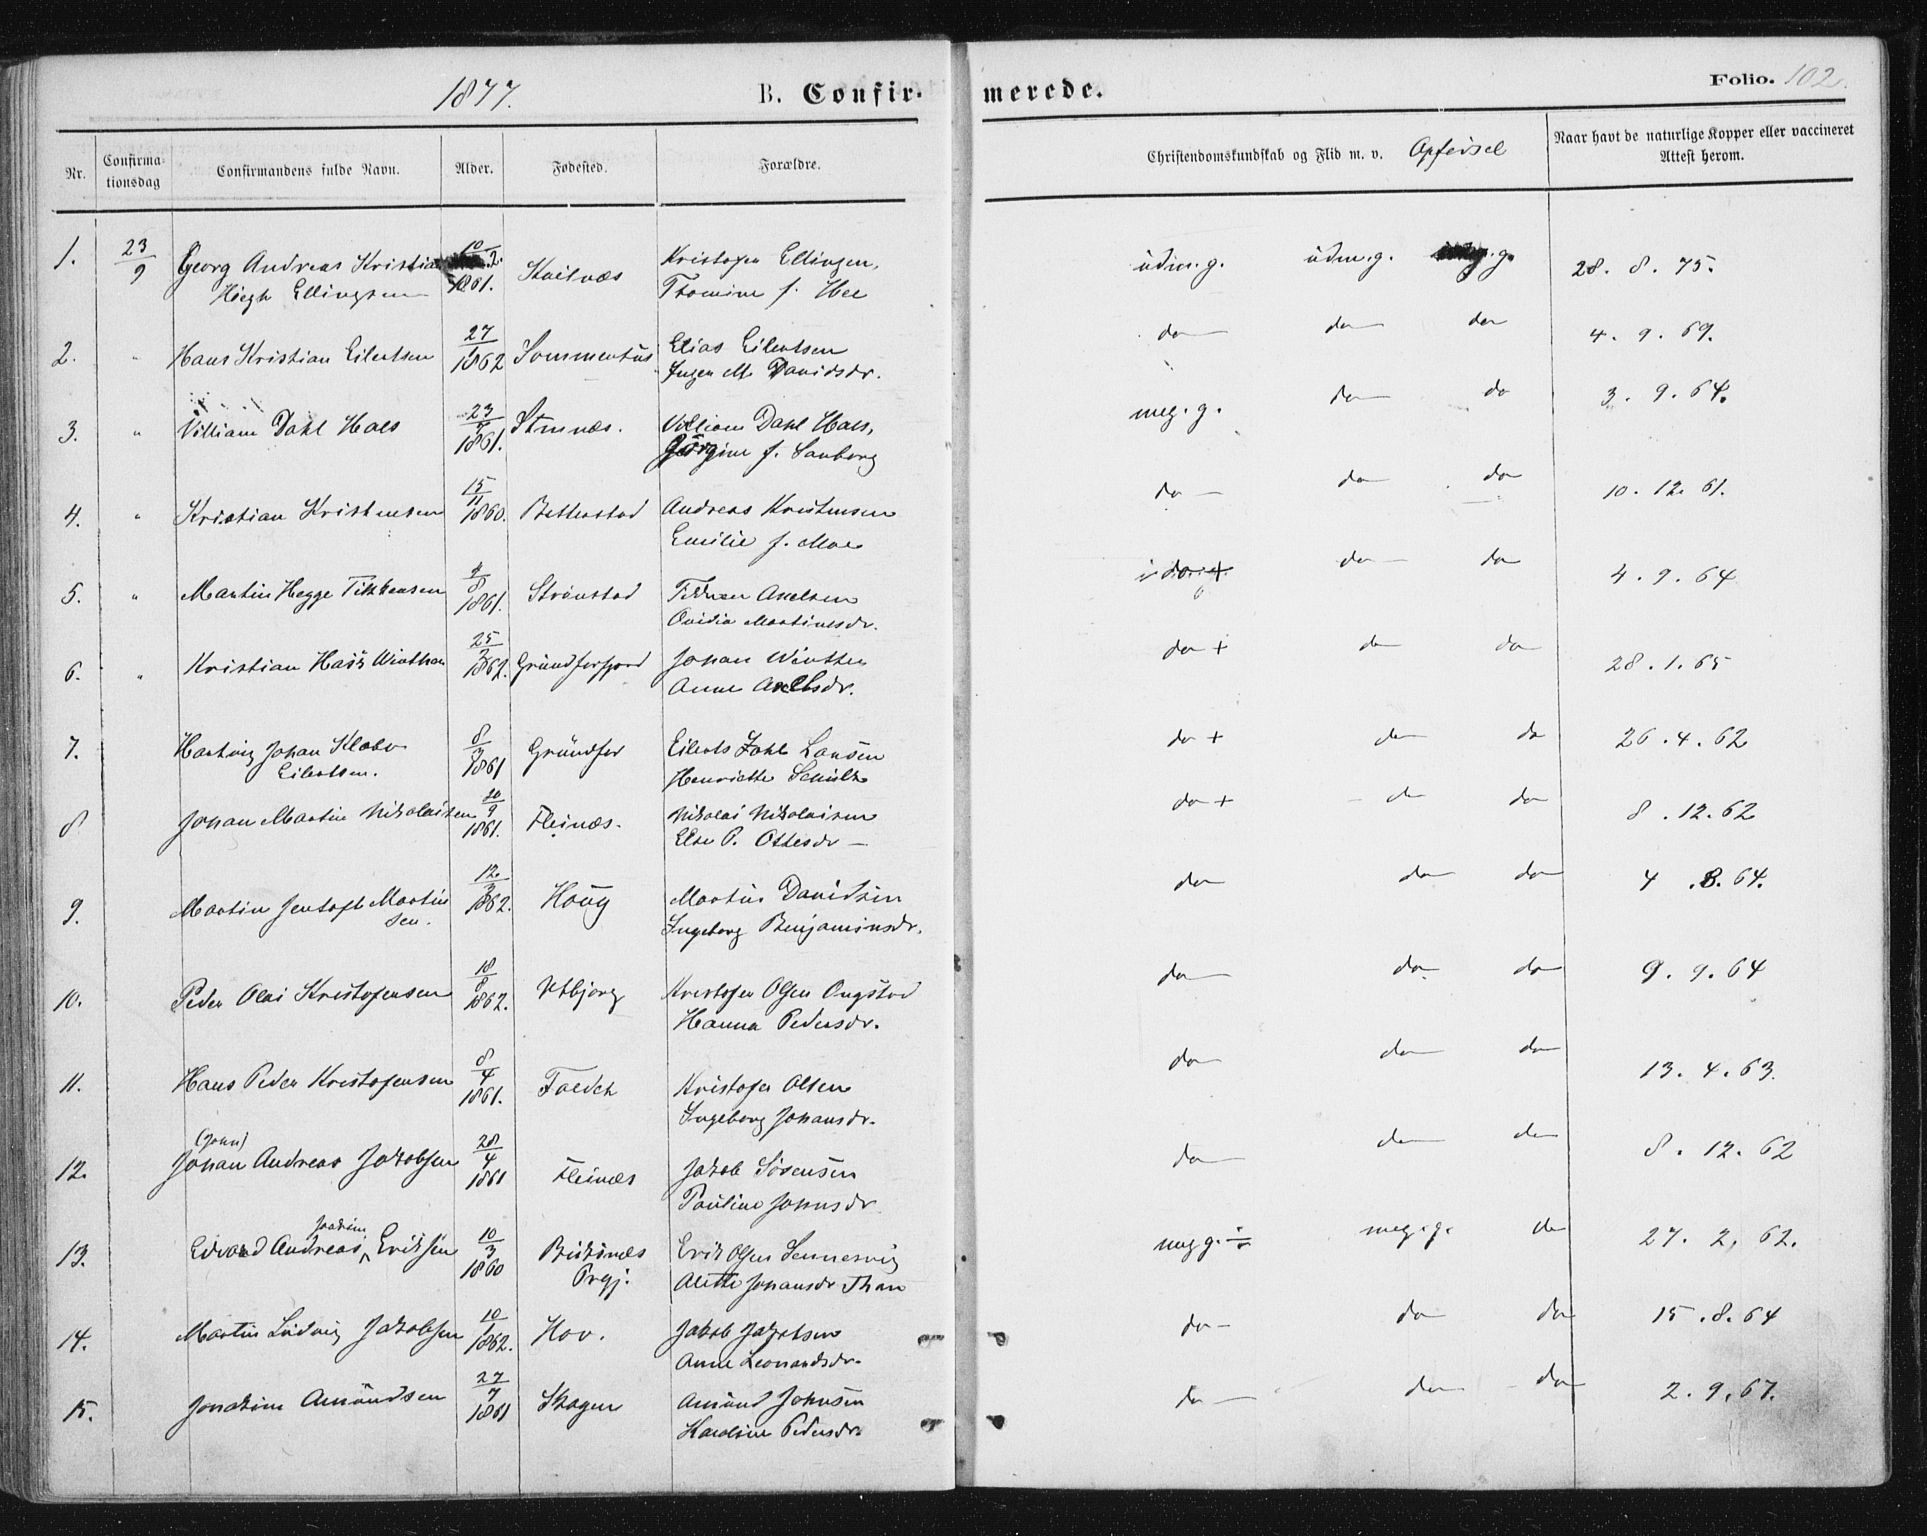 1877.
B. Confirmerede.
Folio. 102.
Nr. Confirmationsdag Confirmandens fulde Navn. Alder. Fødested. Forældre. Christendomskundskab og Flid m. v. Opførsel Naar havt de naturlige Kopper eller vaccineret Attest herom.
1. 23/9 Georg Andreas Kristian 10/2 Kristofer Ellingsen,
Høegh Ellingsen 1861. Thomine f. Hee
üdm.g. üdm.g. 28. 8. 75.
2. " Hans Kristian Eilertsen 27/1 1862 Elias Eilertsen
Inger M. Davidsdr.
do do do 4. 9. 69.
3. " Villiam Dahl Hals 23 1861. Stemnæs. Villiam Dahl Hals,
Jørgine f. Sanborg
meg. g. do do 3. 9. 64.
4. " Kristian Kristensen 15/11 1860. Andreas Kristensen
Emilie f. Moe
do do do 10. 12. 61.
5. " Martin Hegge 4/8 1861. Strønstad Axelsen
Ovidia Martinusdr.
do + do do 4. 9. 64
6. " Kristian Winther 25 1862. Gründforfjord Johan Winther
Anne Axelsdr.
do + do do 28. 1. 65
7. Hartvig Johan Klæbo 8/3 1861 Gründfor Eilert Zahl Larsen
Eilertsen. Henriette Schultz
do + do do 26. 4. 62
8 Johan Martin Nikolaisen 20/9 1861. Fleinæs. Nikolai Nikolaisen
Else P. Ottesdr
do + do do 8. 12. 62
9. Martin Jentoft Martin 12 1862. Haüg Martin Davidsen
sen. Ingeborg Benjaminsdr.
do do do 4. 8. 64.
10. Peder Olai Kristofersen 18 1862. Utbjorg Kristofer Olsen Ongstad
Hanna Pedersdr.
do do do 9. 9. 64
11. Hans Peder Kristofersen 8/4 1861. Kristofer Olsen
Ingeborg Johansdr.
do do do 13. 4. 63.
(John)
12. Johan Andreas Jakobsen 28/4 1861 Fleinæs Jakob Sørensen
Pauline Johnsdr
do do do 8. 12. 62
Joakim
13. Edvard Andreas Eriksen 10/3 1860 Buksnæs Erik Olsen Sennesvig
Prgj. Alette Johansdr Than
meg g. ÷ meg.g. do 27. 2. 62.
14. Martin Lüdvig Jakobsen 10 1862. Hov. Jakob Jakobsen
Anne Leonardsdr.
do do do 15. 8. 64
15. Joakim Amündsen 27/7 1861 Skagen Amünd Johnsen
Karoline Pedersdr.
do do do 2. 9. 67.